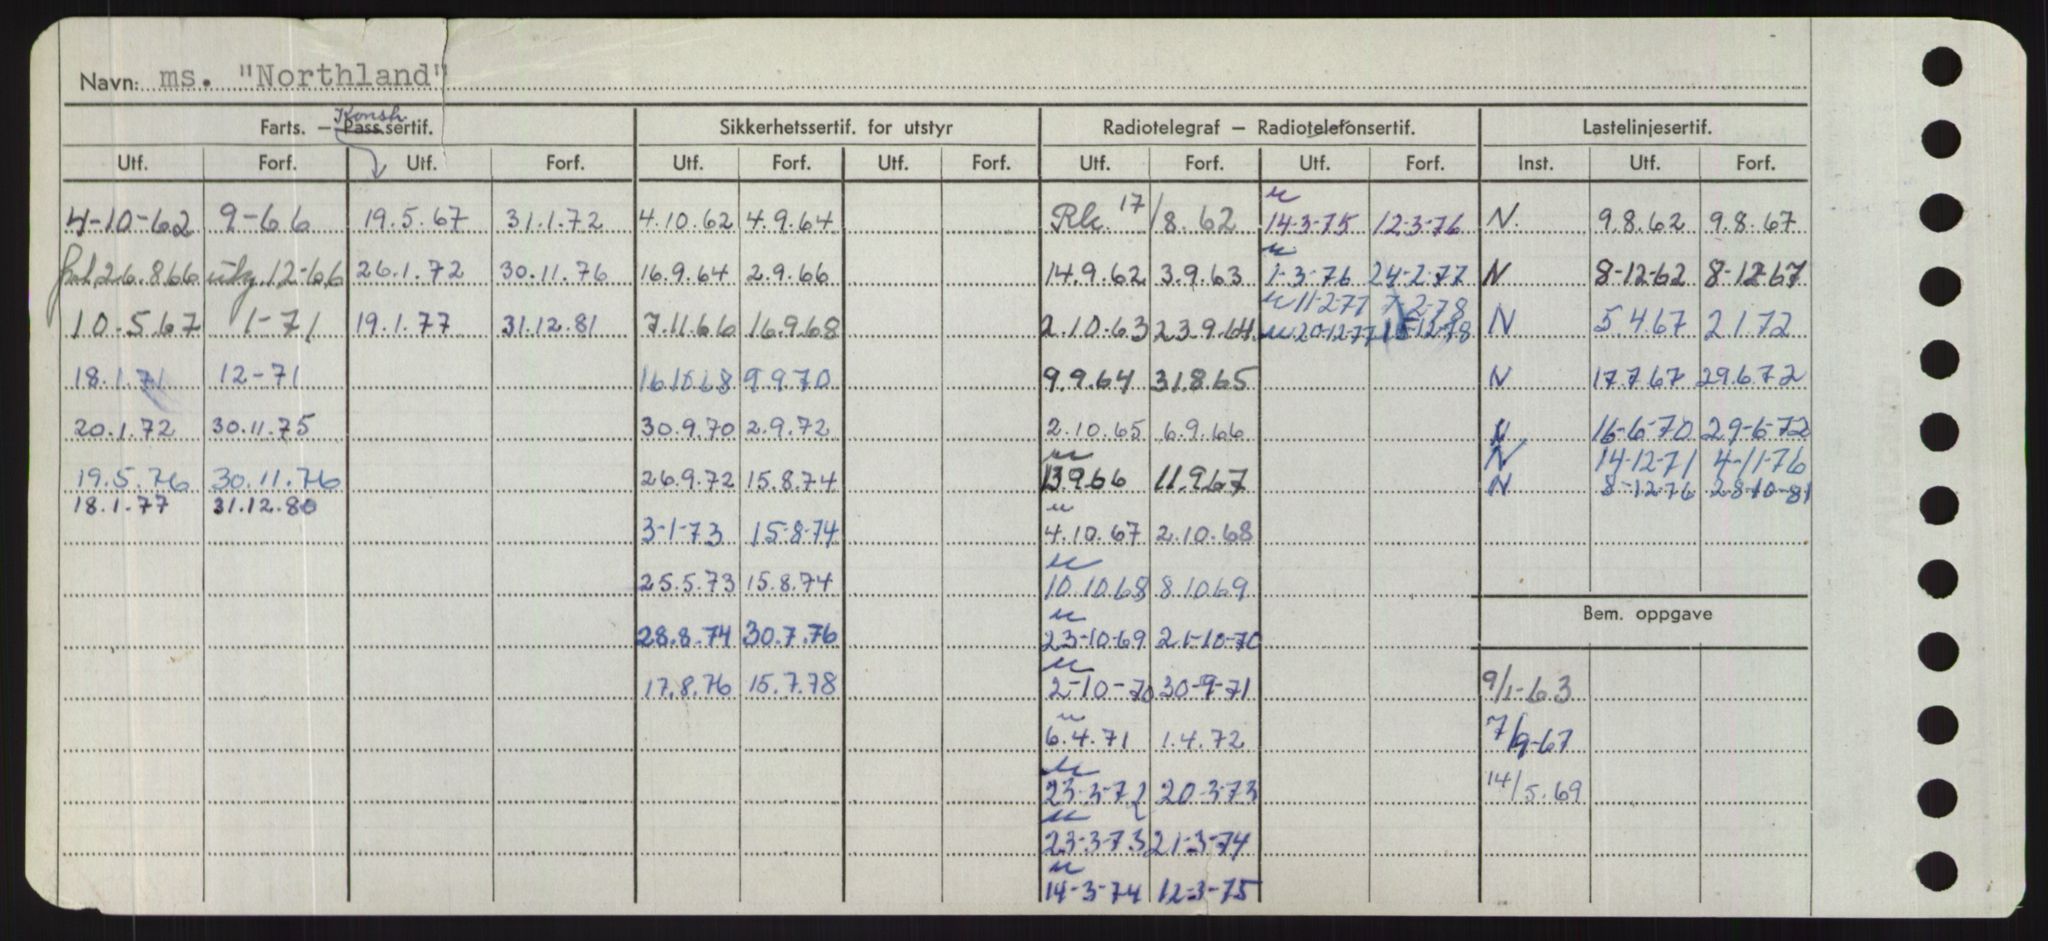 Navn: ms. "Northland"
Konsh
Farts. — Pass.sertif. Sikkerhetssertif. for utstyr Radiotelegraf — Radiotelefonsertif. Lastelinjesertif.
Utf. Forf. Utf. Forf. Utf. Forf. Utf. Forf. Utf. Forf. Utf. Forf. Inst. Utf. Forf.
4-10-62 9-66 19.5.67 31.1.72 4.10.62 4.9.64 Rk. 17/8.62 u 14-3-75 12-3-76 N. 9.8.62 9.8.67
26.8.66 12-66 26.1.72 30.11.76 16.9.64 2.9.66 14.9.62 3.9.63 u 1-3-76 24-2-77 N 8-12-62 8-12-67
u 11-2-77 7-2-78
10-5.67 1-71 19.1.77 31.12.81 7.11.66 16.9.68 2.10.63 23.9.64 u 20-12-77 12-78 N 5.4.67 2.1.72
18.1.71 12-71 16.10.68 9.9.70 9.9.64 31.8.65 N 17.7.67 29.6.72
20.1.72 30.11.75 30.9.70 2.9.72 2.10.65 6.9.66 N 16-6-70 29-6-72
N 14-12-71 4-11-76
19.5.76 30.11.76 26.9.72 15.8.74 u 13.9.66 11.9.67 N 8-12-76 28-10-81
18.1.77 31.12.80
3-1-73 15-8-74 u 4.10.67 2.10.68
25.5.73 15.8.74 u 10.10.68 8.10.69
Bem. oppgave
28.8.74 30.7.76 u 23-10-69 21-10-70
17.8.76 15.7.78 u 2-10-70 30-9-71 9/1-63
u 6.4.71 1.4.72 7/9-67
u 23-3-72 20-3-73 14/5.69
u 23-3-73 21-3-74
u 14-3-74 12-3-75